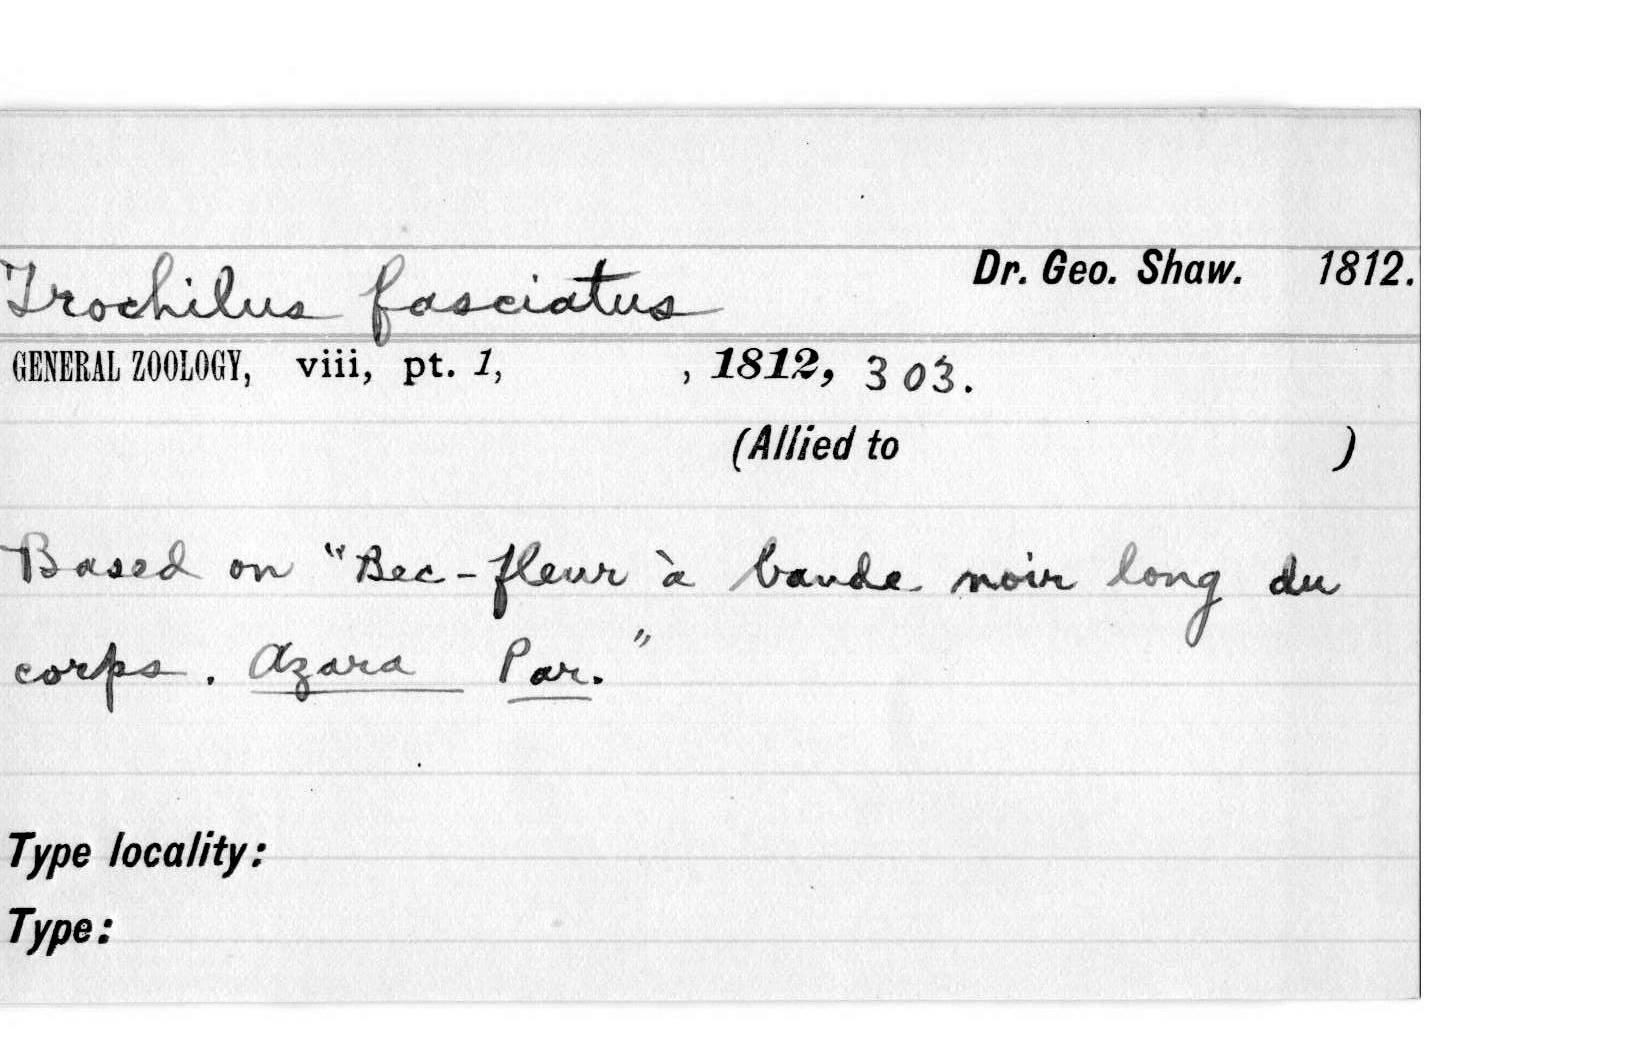 Trochilus fasciatus Dr. Geo. Shaw. 1812.
GENERAL ZOOLOGY, viii, pt. 1, , 1812, 303.
(Allied to )
Based on "Bec-fleur à bande noir long du
corps. Azara Par."
Type locality:
Type: